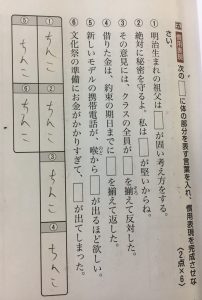 五 慣用表現 次の□に体の部分を表す言葉を入れ、慣用表現を完成させな
さい。 (2点×6)
① 明治生まれの祖父は□が固い考え方をする。
② 絶対に秘密を守るよ。私は□が堅いからね。
③ その意見には、クラスの全員が□を揃えて反対した。
④ 借りた金は、約束の期日までに□を揃えて返した。
⑤ 新しいモデルの携帯電話が、喉から□が出るほど欲しい。
⑥ 文化祭の準備にお金がかかりすぎて、□が出てしまった。
① ちんこ
② ちんこ
③ ちんこ
④ ちんこ
⑤ ちんこ
⑥ ちんこ